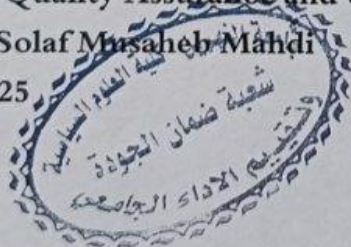 Quality Assurance and
Solaf Musaheb Mahdi
25
كلية العلوم السياسية
شعبة ضمان الجودة
وتقييم الاداء الجامعي